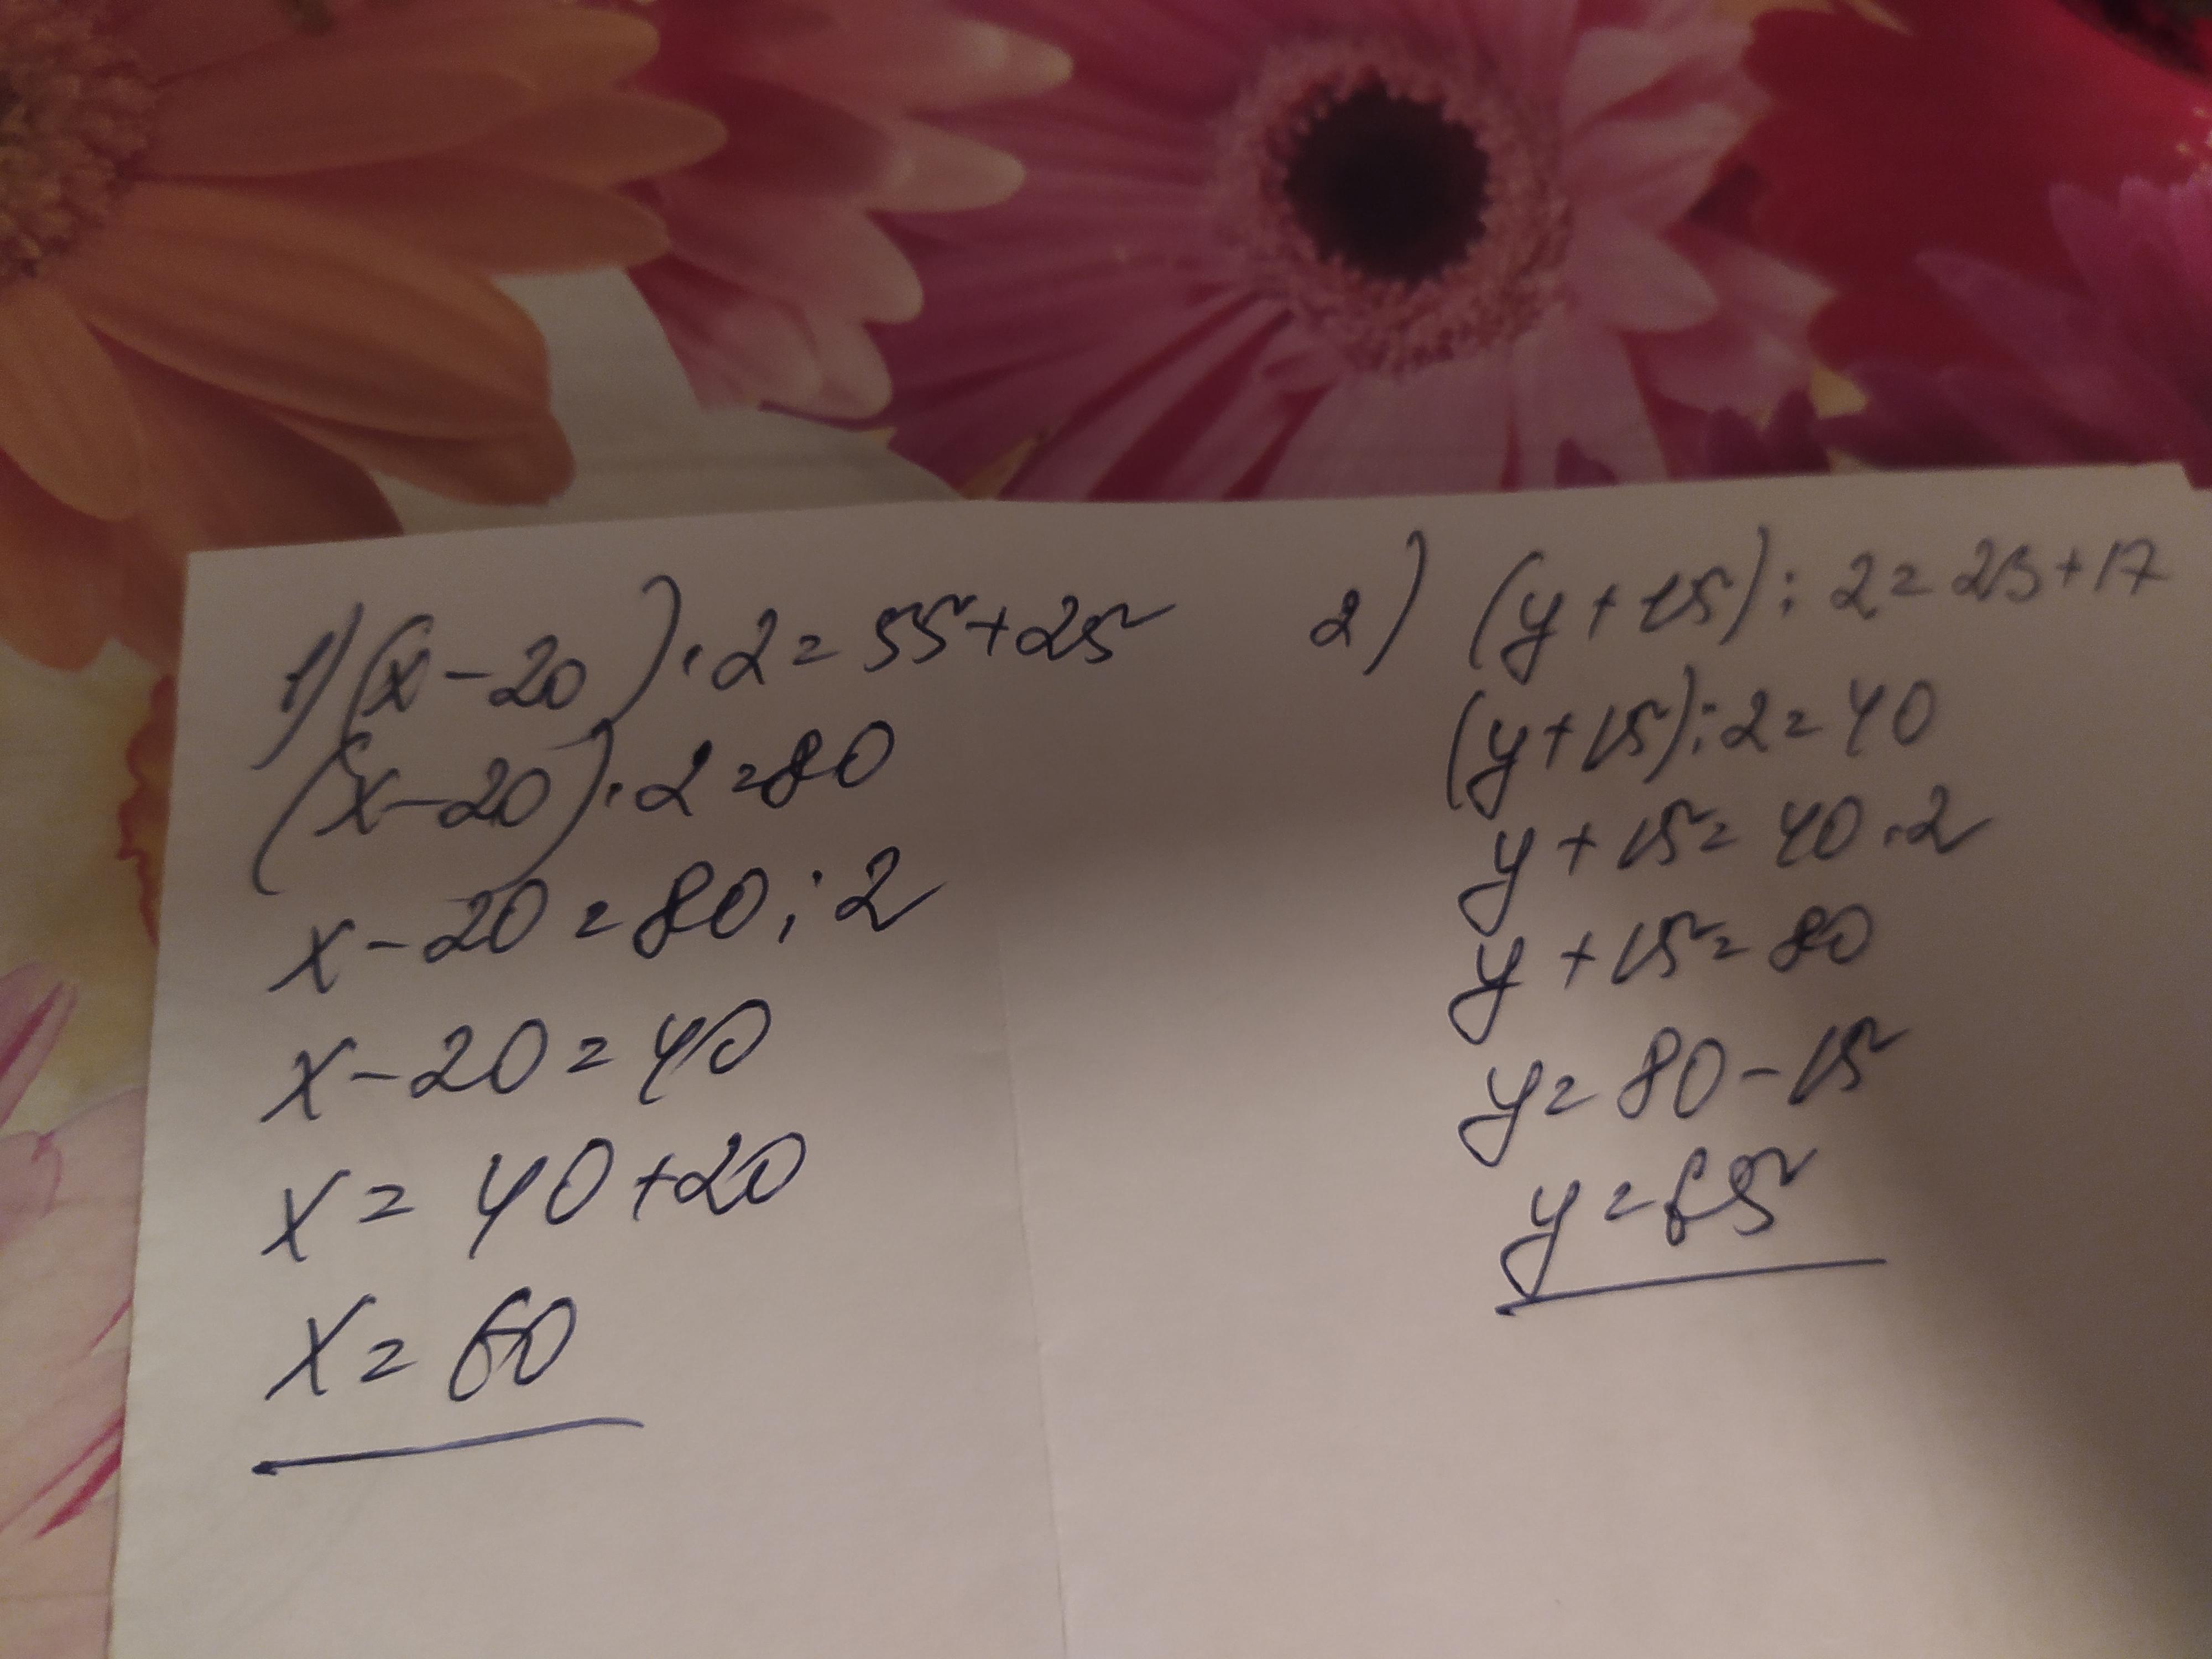 1) (x-20)·2=55+25
(x-20)·2=80
x-20=80:2
x-20=40
x=40+20
x=60
2) (y+15):2=23+17
(y+15):2=40
y+15=40·2
y+15=80
y=80-15
y=65